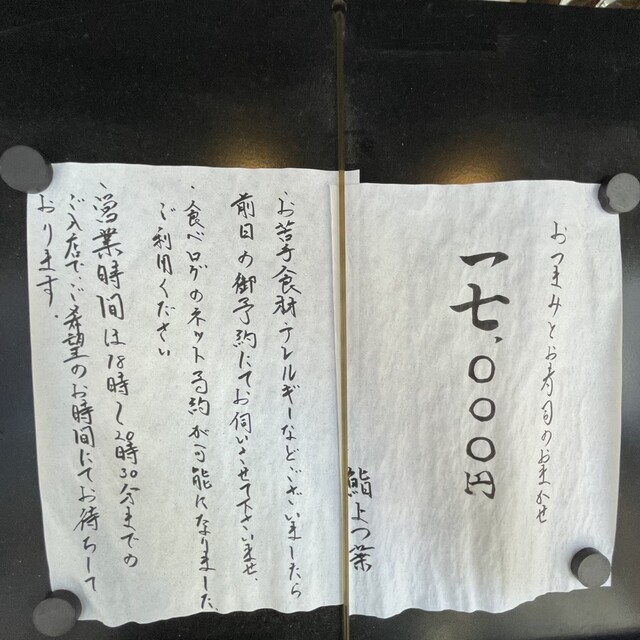 おつまみとお寿司のおまかせ
一七、〇〇〇円
鮨よつ葉
・お苦手食材・アレルギーなどございましたら
前日の御予約にてお伺いさせて下さいませ、
・食べログのネット予約が可能になりました、
ご利用ください
・営業時間は18時〜20時30分までの
ご入店でご希望のお時間にてお待ちして
おります.